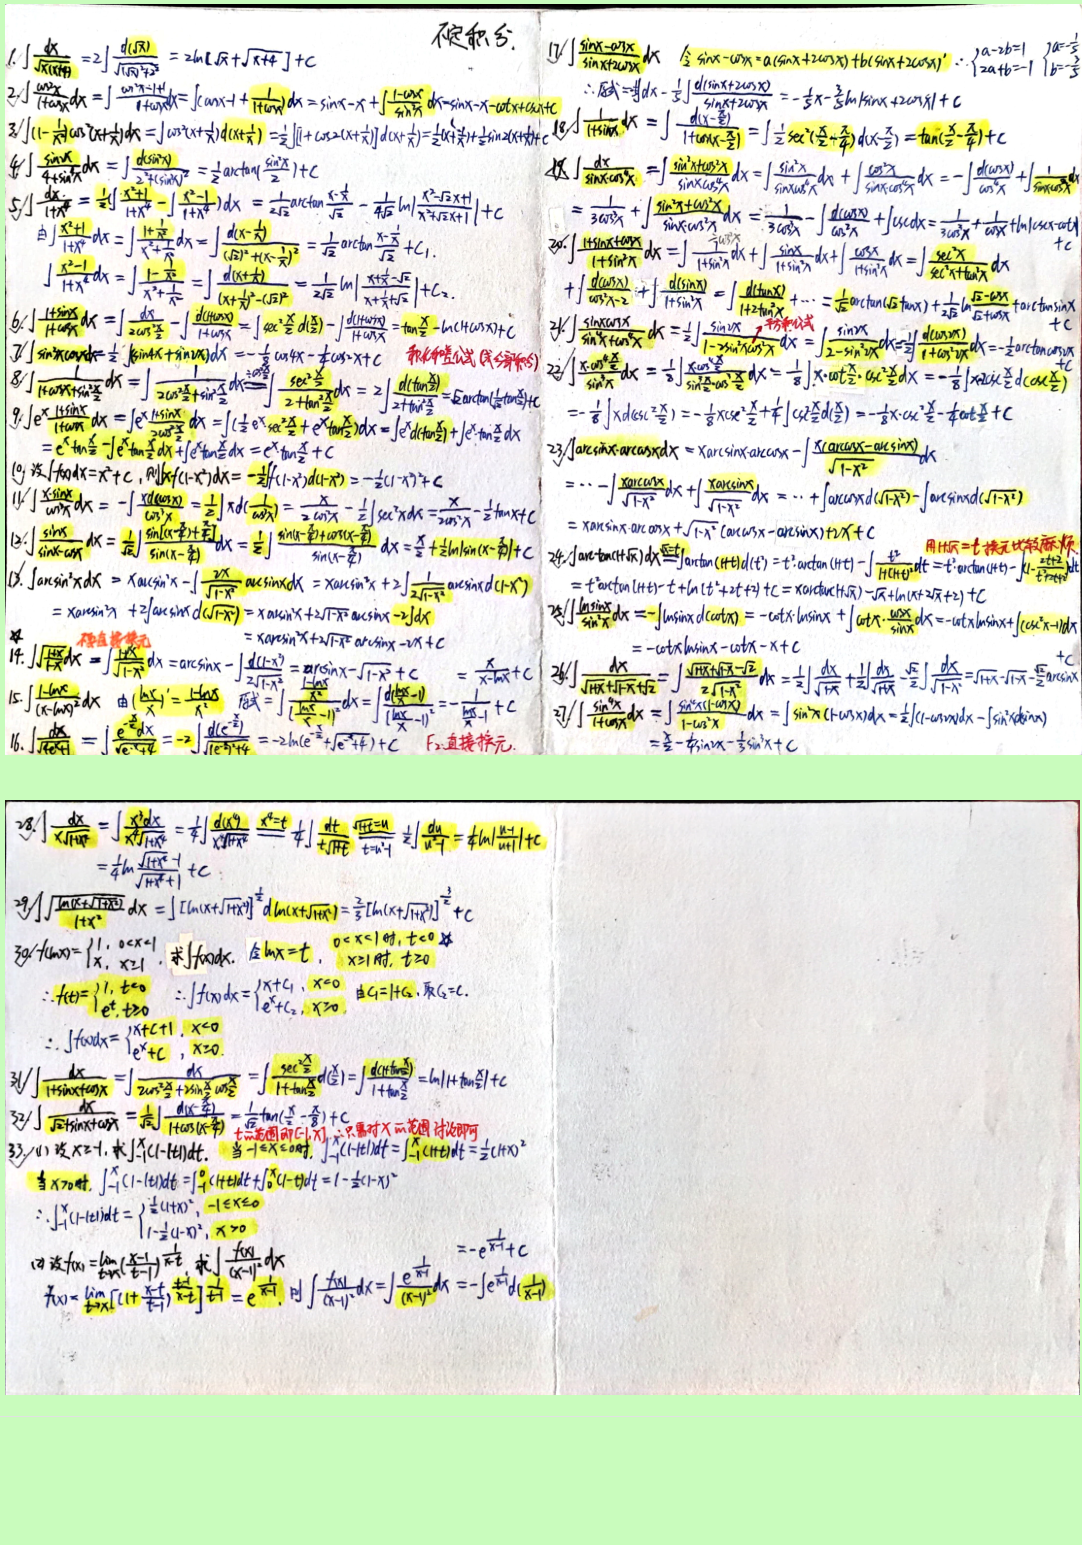 不定积分.
1. ∫ dx/√(x(x+4)) = 2∫ d(√x)/√((√x)²+2²) = 2ln[√x+√(x+4)]+C
2. ∫ cos²x/(1+cosx) dx = ∫ (cos²x-1+1)/(1+cosx) dx = ∫(cosx-1+1/(1+cosx))dx = sinx-x+∫ (1-cosx)/sin²x dx = sinx-x-cotx+cscx+C
3. ∫(1-1/x²)cos²(x+1/x)dx = ∫cos²(x+1/x)d(x+1/x) = 1/2∫[1+cos2(x+1/x)]d(x+1/x) = 1/2(x+1/x)+1/4sin2(x+1/x)+C
4. ∫ dx = ∫ d(sin²x)/(2²+(sin²x)²) = 1/2arctan(sin²x/2)+C
5. ∫ dx/(1+x⁴) = 1/2(∫ (x²+1)/(1+x⁴) - ∫ (x²-1)/(1+x⁴))dx = 1/(2√2) arctan (x-1/x)/√2 - 1/(4√2) ln|(x²-√2x+1)/(x²+√2x+1)|+C
由∫ (x²+1)/(1+x⁴) dx = ∫ (1+1/x²)/(x²+1/x²) dx = ∫ d(x-1/x)/((√2)²+(x-1/x)²) = 1/√2 arctan (x-1/x)/√2 +C₁.
∫ (x²-1)/(1+x⁴) dx = ∫ (1-1/x²)/(x²+1/x²) dx = ∫ d(x+1/x)/((x+1/x)²-(√2)²) = 1/(2√2) ln|(x+1/x-√2)/(x+1/x+√2)|+C₂.
6. ∫ (1+sinx)/(1+cosx) dx = ∫ dx/(2cos²x/2) - ∫ d(1+cosx)/(1+cosx) = ∫sec²x/2 d(x/2) - ∫ d(1+cosx)/(1+cosx) = tan x/2 - ln(1+cosx)+C
7. dx = 1/2∫(sin4x+sin2x)dx = -1/8cos4x-1/4cos2x+C 积化和差公式
8. ∫ 1/(1+cosx+sin²x/2) dx = ∫ 1/(2cos²x/2+sin²x/2) dx = ∫ sec²x/2/(2+tan²x/2) dx = 2∫ d(tan x/2)/(2+tan²x/2) = √2arctan(1/√2 tan x/2)+C
9. ∫eˣ (1+sinx)/(1+cosx) dx = ∫eˣ (1+sinx)/(2cos²x/2) dx = ∫(1/2eˣsec²x/2+eˣtan x/2)dx = ∫eˣd(tan x/2)+∫eˣtan x/2 dx
= eˣtan x/2 - ∫eˣtan x/2 dx+∫eˣtan x/2 dx = eˣtan x/2+C
10. 设∫f(x)dx = x²+C, 则∫xf(1-x²)dx = -1/2∫f(1-x²)d(1-x²) = -1/2(1-x²)²+C
11. ∫ x·sinx/cos³x dx = -∫ xd(cosx)/cos³x = 1/2∫xd(1/cos²x) = x/(2cos²x) - 1/2∫sec²xdx = x/(2cos²x) - 1/2tanx+C
12. ∫ sinx/(sinx-cosx) dx = 1/√2∫ sin[(x-π/4)+π/4]/sin(x-π/4) dx = 1/2∫ (sin(x-π/4)+cos(x-π/4))/sin(x-π/4) dx = x/2+1/2ln|sin(x-π/4)|+C
13. ∫arcsin²xdx = xarcsin²x-∫ 2x/√(1-x²) arcsinxdx = xarcsin²x+2∫ 1/(2√(1-x²)) arcsinxd(1-x²)
= xarcsin²x+2∫arcsinxd(√(1-x²)) = xarcsin²x+2√(1-x²)arcsinx-2∫dx
= xarcsin²x+2√(1-x²)arcsinx-2x+C
直接换元
14. ∫√((1+x)/(1-x)) dx = ∫ (1+x)/√(1-x²) dx = arcsinx-∫ d(1-x²)/(2√(1-x²)) = arcsinx-√(1-x²)+C
= x/(x-lnx)+C
15. ∫ (1-lnx)/(x-lnx)² dx 由(lnx/x)' = (1-lnx)/x² 原式 = ∫ ((1-lnx)/x²)/(lnx/x-1)² dx = ∫ d(lnx/x-1)/(lnx/x-1)² = -1/(lnx/x-1)+C
16. = -2∫ d(e^(-x/2))/√((e^(-x/2))²+4) = -2ln(e^(-x/2)+√(e^(-x)+4))+C 直接换元.
17. ∫ (sinx-cosx)/(sinx+2cosx) dx 令sinx-cosx=a(sinx+2cosx)+b(sinx+2cosx)' ∴{a-2b=1 2a+b=-1 {a=-1/5 b=-3/5
∴原式 = -1/5x-3/5ln|sinx+2cosx|+C
18. ∫ 1/(1+sinx) dx = ∫ d(x-π/2)/(1+cos(x-π/2)) = ∫1/2sec²(x/2-π/4)d(x-π/2) = tan(x/2-π/4)+C
19. ∫ dx/(sinx·cos⁴x) = ∫ (sin²x+cos²x)/(sinxcos⁴x) dx = ∫ sin²x/(sinxcos⁴x) dx+∫ cos²x/(sinx·cos⁴x) dx = -∫ d(cosx)/cos⁴x+∫ 1/(sinxcos²x) dx
= 1/(3cos³x)+∫ (sin²x+cos²x)/(sinx·cos²x) dx = 1/(3cos³x)-∫ d(cosx)/cos²x+∫cscxdx = 1/(3cos³x)+1/cosx+ln|cscx-cotx|+C
20. ∫ (1+sinx+cosx)/(1+sin²x) dx = ∫ 1/(1+sin²x) dx+∫ sinx/(1+sin²x) dx+∫ cosx/(1+sin²x) dx = ∫ sec²x/(sec²x+tan²x) dx
+∫ d(cosx)/(cos²x-2)+∫ d(sinx)/(1+sin²x) = ∫ d(tanx)/(1+2tan²x)+… = 1/√2arctan(√2tanx)+1/(2√2)ln (√2-cosx)/(√2+cosx)+arctansinx+C
平方和公式
21. ∫ sinxcosx/(sin⁴x+cos⁴x) dx = 1/2∫ sin2x/(1-2sin²xcos²x) dx = ∫ sin2x/(2-sin²2x) dx = -1/2∫ d(cos2x)/(1+cos²2x) = -1/2arctancos2x+C
22. ∫ x·cos⁴x/2/sin³x dx = 1/8∫ x·cos⁴x/2/(sin³x/2·cos³x/2) dx = 1/8∫x·cot x/2·csc²x/2dx = -1/4∫x·csc x/2 d(csc x/2)
= -1/8∫xd(csc²x/2) = -1/8xcsc²x/2+1/4∫csc²x/2d(x/2) = -1/8x·csc²x/2-1/4cot x/2+C
23. ∫arcsinx·arccosxdx = xarcsinx·arccosx-∫ x(arccosx-arcsinx)/√(1-x²) dx
= …-∫ xarccosx/√(1-x²) dx+∫ xarcsinx/√(1-x²) dx = …+∫arccosxd(√(1-x²))-∫arcsinxd(√(1-x²))
= xarcsinx·arccosx+√(1-x²)(arccosx-arcsinx)+2x+C
用1+√x=t换元比较麻烦
24. ∫arctan(1+√x)dx = ∫arctan(1+t)d(t²) = t²·arctan(1+t)-∫ t²/(1+(1+t)²) dt = t²·arctan(1+t)-∫(1-(2t+2)/(t²+2t+2))dt
= t²arctan(1+t)-t+ln(t²+2t+2)+C = xarctan(1+√x)-√x+ln(x+2√x+2)+C
25. ∫ lnsinx/sin²x dx = -∫lnsinxd(cotx) = -cotx·lnsinx+∫cotx·cosx/sinx dx = -cotxlnsinx+∫(csc²x-1)dx
= -cotxlnsinx-cotx-x+C
26. ∫ dx/(√(1+x)+√(1-x)+√2) = ∫ (√(1+x)+√(1-x)-√2)/(2√(1-x²)) dx = 1/2∫ dx/√(1-x)+1/2∫ dx/√(1+x)-√2/2∫ dx/√(1-x²) = √(1+x)-√(1-x)-√2/2arcsinx+C
27. ∫ sin⁴x/(1+cosx) dx = ∫ sin⁴x(1-cosx)/(1-cos²x) dx = ∫sin²x(1-cosx)dx = 1/2∫(1-cos2x)dx-∫sin²xd(sinx)
= x/2-1/4sin2x-1/3sin³x+C
28. ∫ dx/(x√(1+x⁴)) = ∫ x³dx/(x⁴√(1+x⁴)) = 1/4∫ d(x⁴)/(x⁴√(1+x⁴)) x⁴=t 1/4∫ dt/(t√(1+t)) √(1+t)=u t=u²-1 1/2∫ du/(u²-1) = 1/4ln|(u-1)/(u+1)|+C
= 1/4ln (√(1+x⁴)-1)/(√(1+x⁴)+1) +C
29. ∫ √(ln(x+√(1+x²))/(1+x²)) dx = ∫[ln(x+√(1+x²))]^(1/2) dln(x+√(1+x²)) = 2/3[ln(x+√(1+x²))]^(3/2)+C
30. f(lnx)={1, 0<x<1 x, x≥1, 求∫f(x)dx. 令lnx=t, 0<x<1时, t<0 x≥1时, t≥0
∴f(t)={1, t<0 eᵗ, t≥0 ∴∫f(x)dx={x+C₁, x<0 eˣ+C₂, x≥0. 由C₁=1+C₂, 取C₂=C.
∴∫f(x)dx={x+C+1, x<0 eˣ+C, x≥0.
31. ∫ dx/(1+sinx+cosx) = ∫ dx/(2cos²x/2+2sin x/2 cos x/2) = ∫ sec²x/2/(1+tan x/2) d(x/2) = ∫ d(1+tan x/2)/(1+tan x/2) = ln|1+tan x/2|+C
32. ∫ dx/(√2+sinx+cosx) = 1/√2∫ d(x-π/4)/(1+cos(x-π/4)) = 1/√2tan(x/2-π/8)+C
t的范围即[-1,x], ∴只需对x的范围讨论即可
33. (1) 设x≥-1, 求∫₋₁ˣ(1-|t|)dt. 当-1≤x≤0时, ∫₋₁ˣ(1-|t|)dt=∫₋₁ˣ(1+t)dt=1/2(1+x)²
当x>0时, ∫₋₁ˣ(1-|t|)dt=∫₋₁⁰(1+t)dt+∫₀ˣ(1-t)dt=1-1/2(1-x)²
∴∫₋₁ˣ(1-|t|)dt={1/2(1+x)², -1≤x≤0 1-1/2(1-x)², x>0
(2) 设f(x)=lim t→x ((x-1)/(t-1))^(1/(x-t)), 求∫ f(x)/(x-1)² dx
= -e^(1/(x-1))+C
f(x)=lim t→x [(1+(x-t)/(t-1))^((t-1)/(x-t))]^(1/(t-1)) = e^(1/(x-1)), 则∫ f(x)/(x-1)² dx=∫ e^(1/(x-1))/(x-1)² dx = -∫e^(1/(x-1))d(1/(x-1))